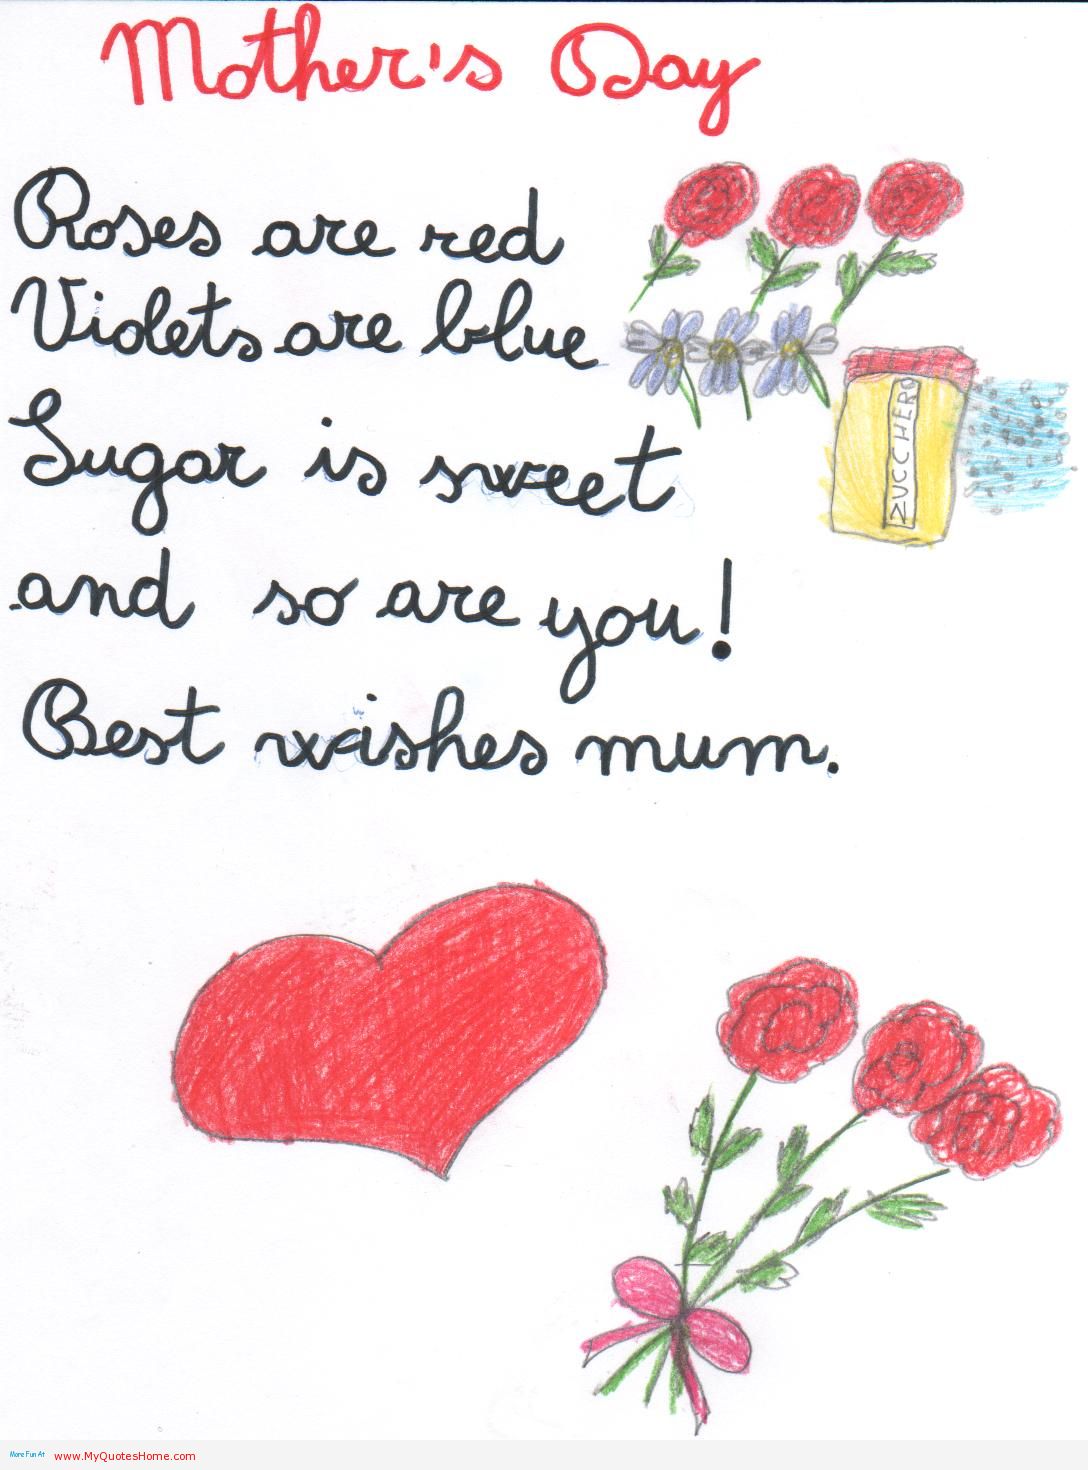 Mother's Day
Roses are red
Violets are blue
Sugar is sweet
ZUCCHERO
and so are you!
Best wishes mum.
More Fun At www.MyQuotesHome.com